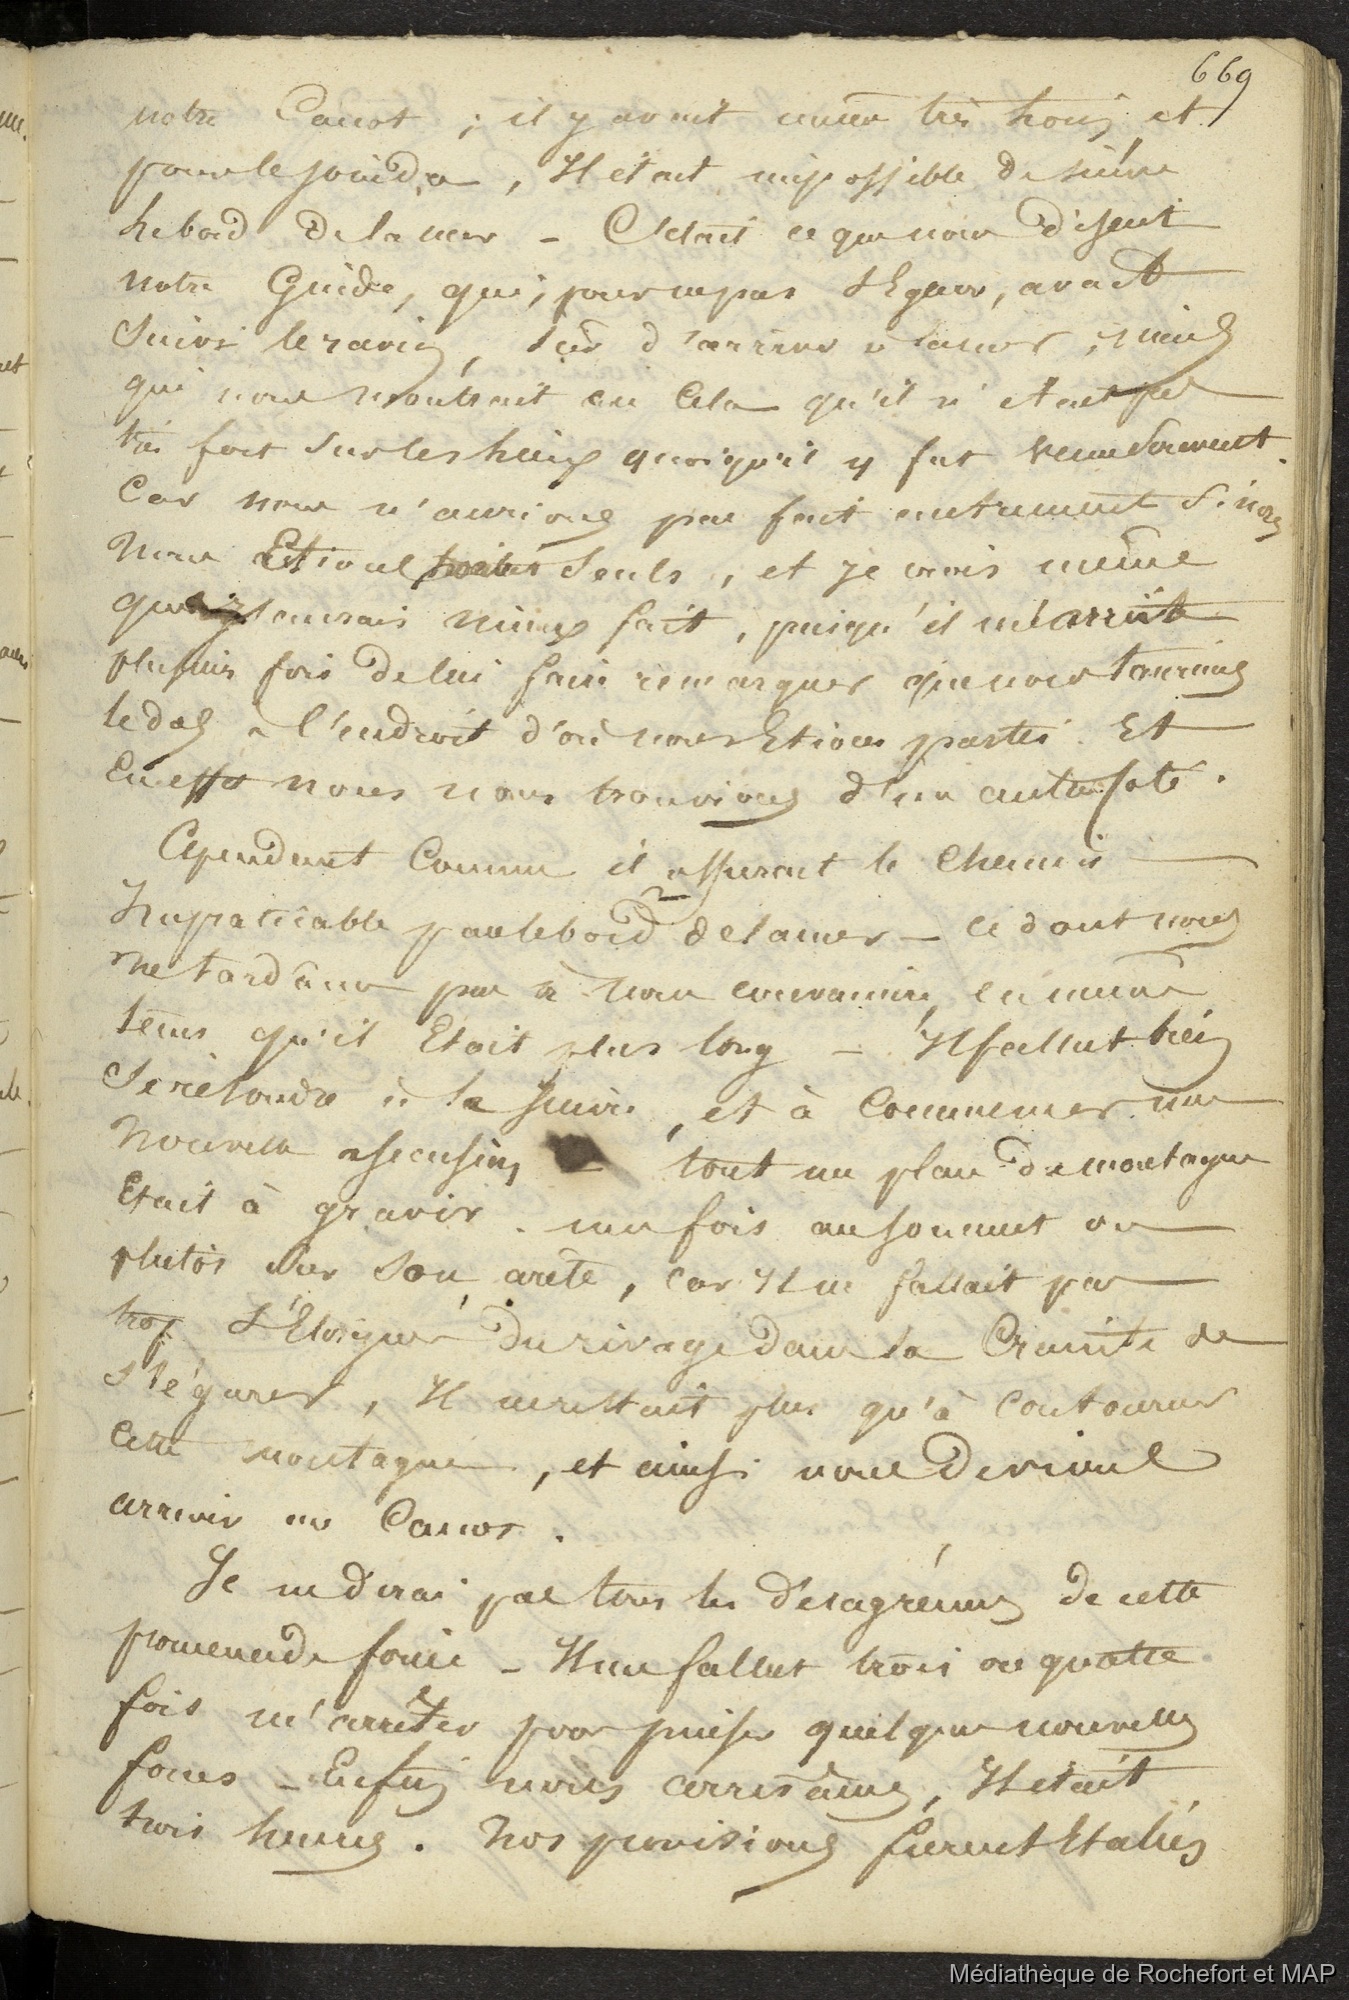 669
notre Canot ; il y avait encor très loin, et
pour le joindre, Il était impossible de suivre
le bord de la mer - C'était ce que nous disait
notre Guide, qui, pour ne pas s'Egarer, avait
suivi le ravin, sûr d'arriver à la mer ; mais
qui nous montrait en cela qu'il n'était pas
très fort sur les lieux quoiqu'il y fut venu souvent.
Car nous n'aurions pas fait autrement si nous
nous Etions seuls, et je crois même
que j'aurais mieux fait, puisqu'il m'arriva
plusieurs fois de lui faire remarquer que nous tournions
le dos à l'endroit d'où nous Etions partis. Et
En effet nous nous trouvions d'un autre coté.
Cependant Comme il assurait le Chemin
Impraticable par le bord de la mer - ce dont nous
ne tardâmes pas à nous convaincre, en même
tems qu'il Etait plus long - Il fallut bien
se résoudre à le suivre, et à Commencer une
nouvelle ascension - tout un plan de montagne
Etait à gravir. une fois au sommet ou
plutôt sur son arête, car Il ne fallait pas
trop s'Eloigner du rivage dans la Crainte de
s'égarer, Il ne restait plus qu'à Contourner
cette montagne, et ainsi nous devions
arriver au Canot.
Je ne dirai pas tous les désagrémens de cette
promenade forcée - Il me fallut trois ou quatre
fois m'arrêter pour puiser quelques nouvelles
forces - Enfin nous arrivâmes, Il était
trois heures. Nos provisions furent Etalées
Médiathèque de Rochefort et MAP